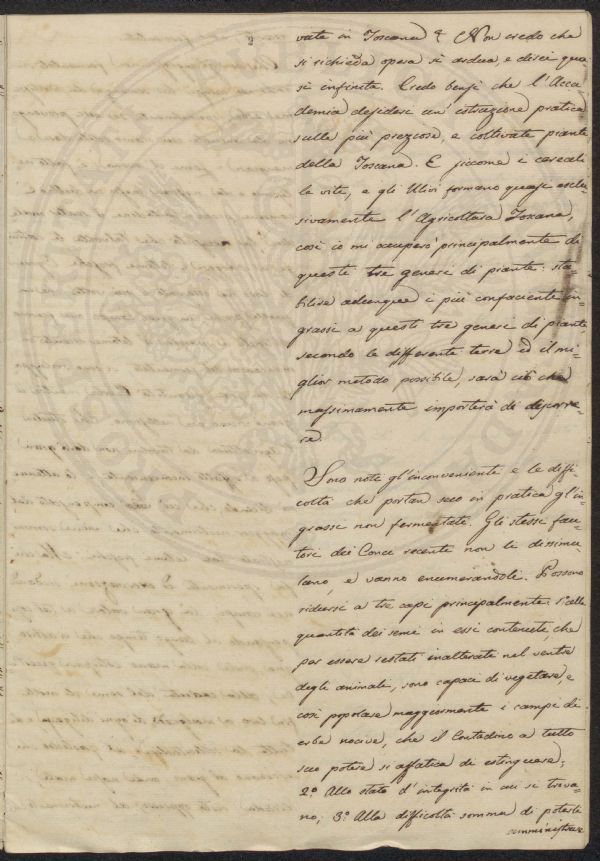 2
vate in Toscana? Non credo che
si richieda opera sì ardua, e direi qua-
si infinita. Credo bensì che l'Acca-
demia desideri un'istruzione pratica
sulle più preziose, e coltivate piante
della Toscana. E siccome i cereali
le vite, e gli Ulivi formano quasi esclu-
sivamente l'Agricoltura Toscana,
così io mi occuperò principalmente di
queste tre generi di piante: sta-
bilire adunque i più confacienti in-
grassi a questi tre generi di piante
secondo le differenti terre ed il mi-
glior metodo possibile, sarà ciò che
massimamente importerà di discorre-
re.
Sono note gl'inconvenienti e le diffi-
coltà che portan seco in pratica gl'in-
grassi non fermentati. Gli stessi fau-
tori dei Conci recenti non le dissimu-
lano, e vanno enumerandoli. Possono
ridursi a tre capi principalmente: 1° alla
quantità dei semi in essi contenuti, che
per essere restati inalterati nel ventre
degli animali, sono capaci di vegetare, e
così popolare maggiormente i campi di
erbe nocive, che il Contadino a tutto
suo potere si affatica di estinguere;
2° Allo stato d'integrità in cui si trova-
no; 3° Alla difficoltà somma di poterli
amministrare